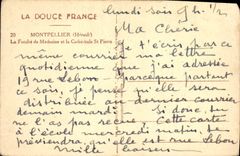 LA DOUCE FRANCE
20 MONTPELLIER (Hérault)
La Faculté de Médecine et la Cathédrale St Pierre
lundi soir 9h 1/2
Ma Chérie
Je t'écris par ce
même courrier ma lettre
quotidienne que j'ai adressée
19 rue Lebon - parceque partant
ce soir, je pense qu'elle sera
distribuée au dernier courrier
demain mardi. Si donc tu
ne l'as pas reçue, cette carte
à l'école mercredi matin, te
préviendra, qu'elle est rue Lebon
mille baisers